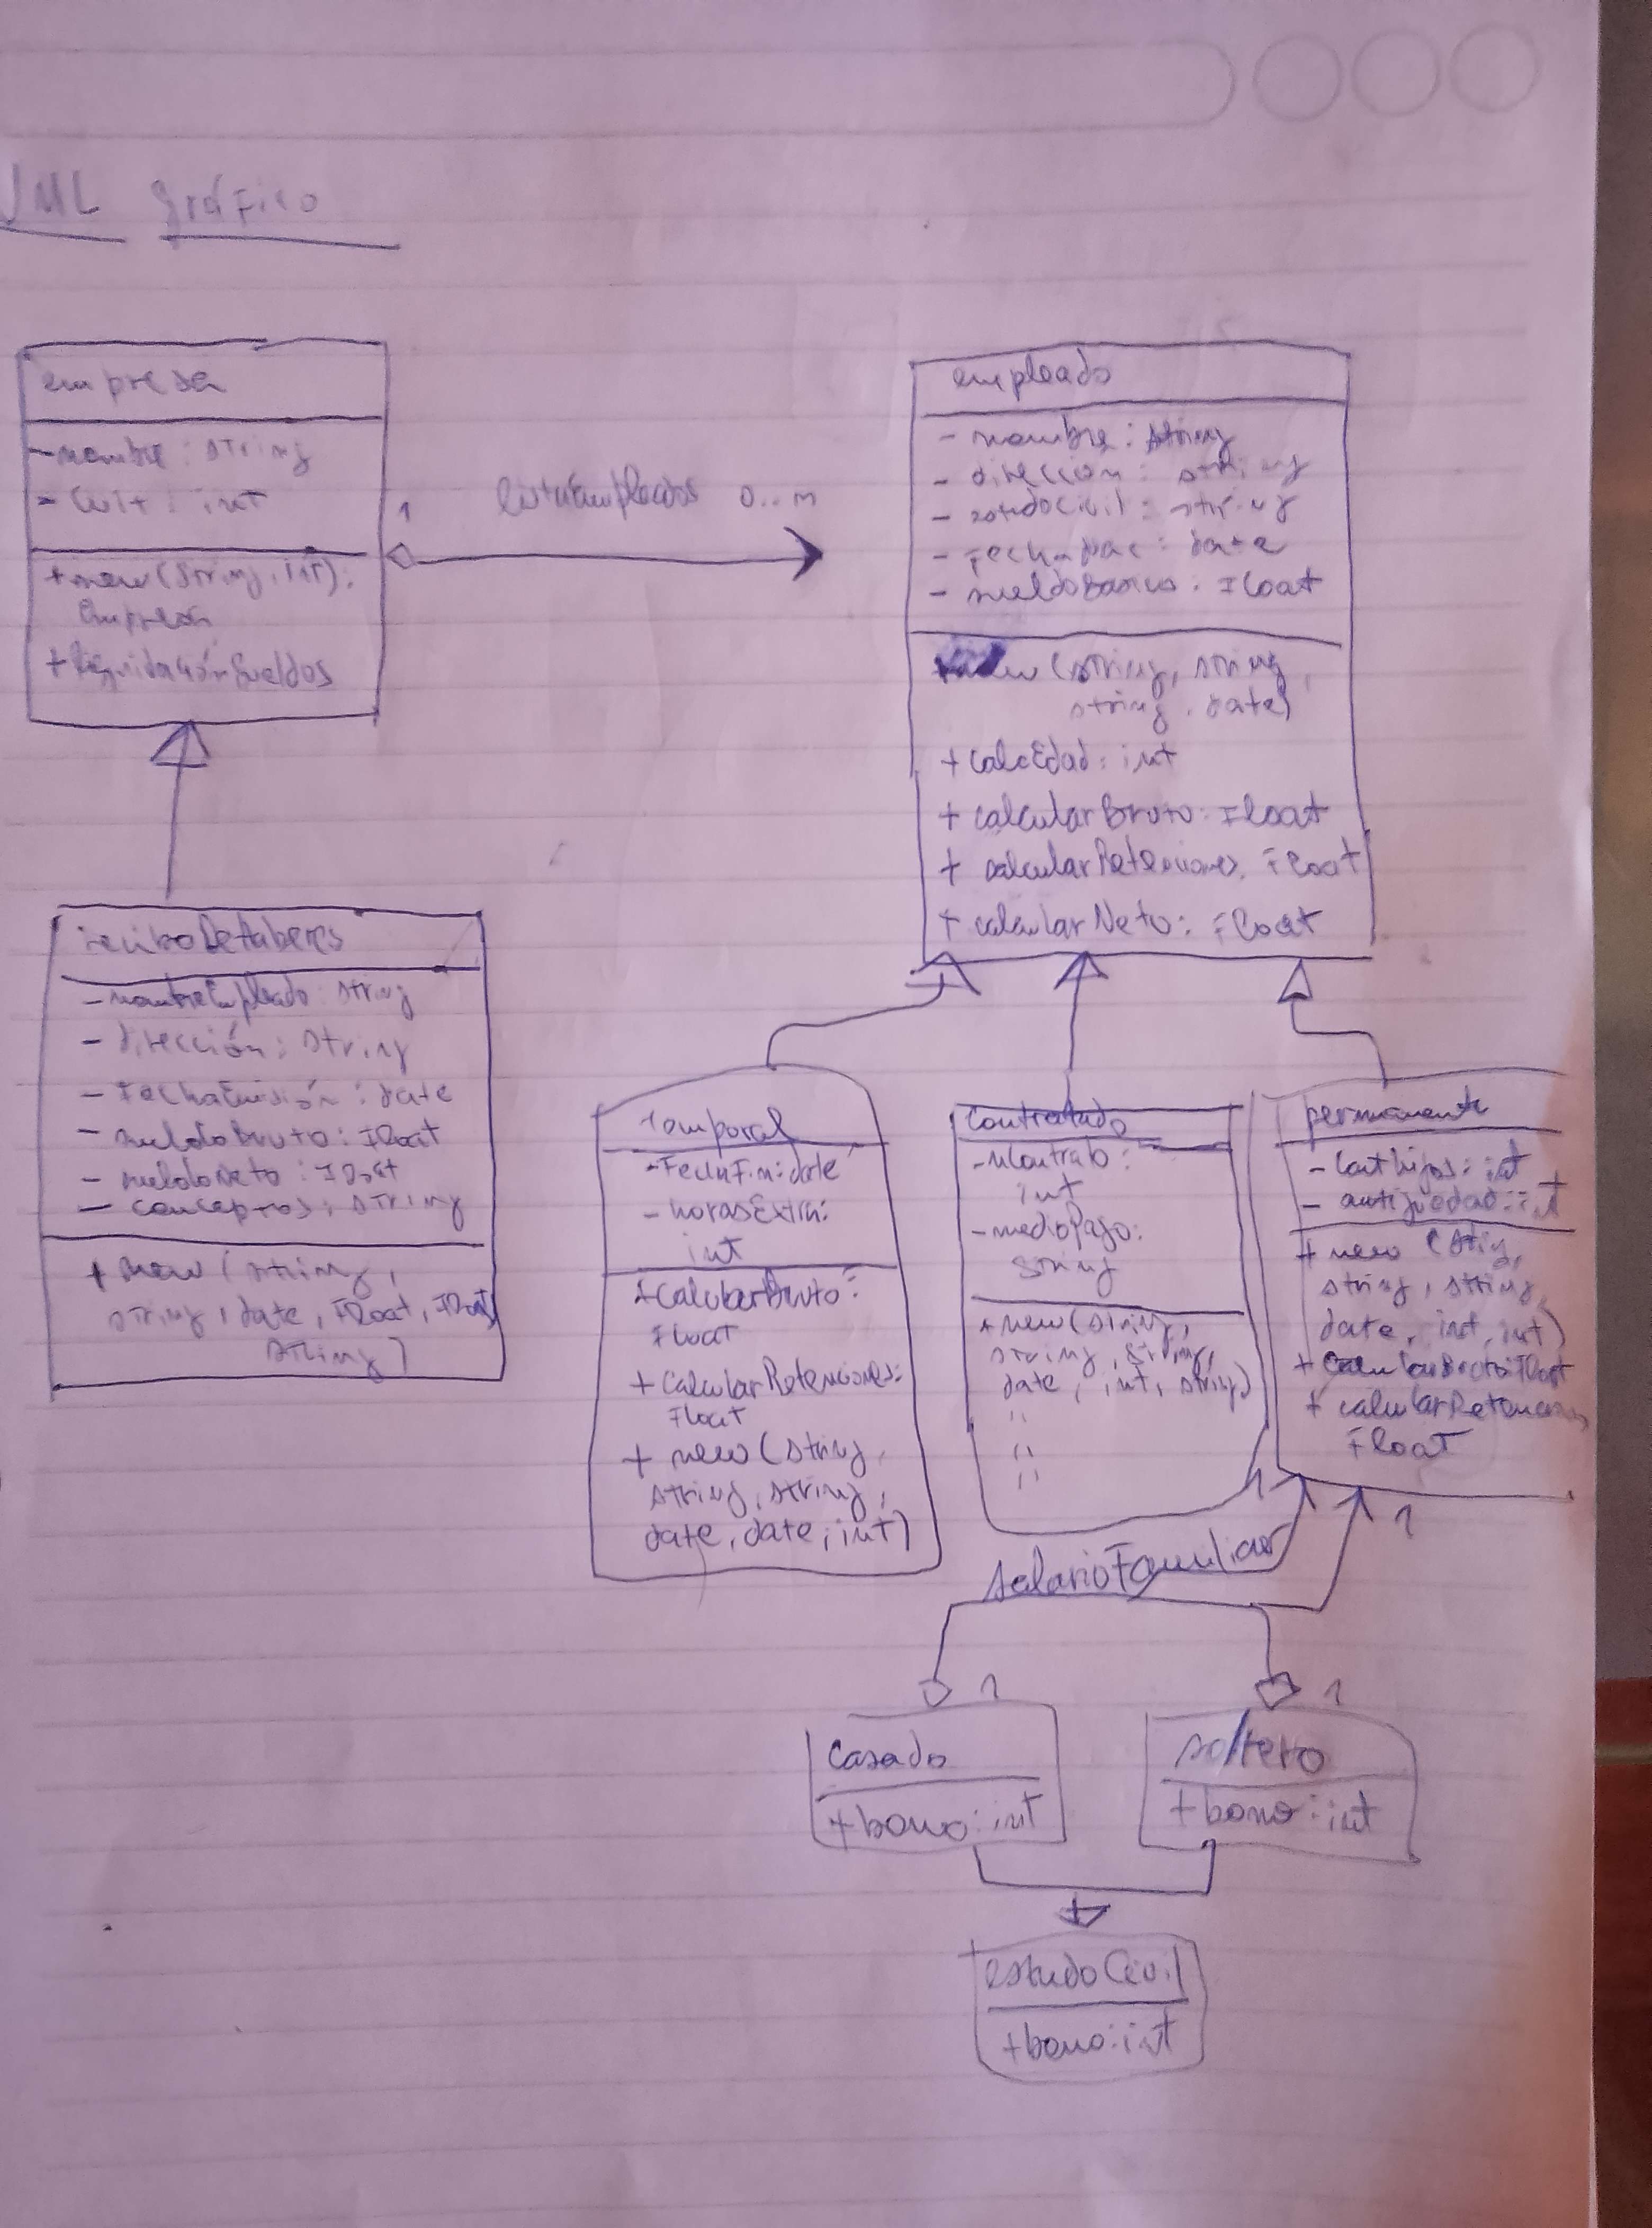 UML gráfico
empresa
- nombre : string
- cuit : int
+ new (string, int):
empresa
+ liquidaciónSueldos
1 listaEmpleados 0..m
empleado
- nombre : string
- dirección : string
- estadoCivil : string
- fechaNac : date
- sueldoBasico : float
+ new (string, string,
string, date)
+ calcEdad : int
+ calcularBruto : float
+ calcularRetenciones : float
+ calcularNeto : float
reciboDeHaberes
- nombreEmpleado : string
- dirección : string
- fechaEmisión : date
- sueldoBruto : float
- sueldoNeto : float
- conceptos : string
+ new (string,
string, date, float, float,
string)
temporal
- fechaFin : date
- horasExtra :
int
+ calcularBruto :
float
+ calcularRetenciones :
float
+ new (string,
string, string,
date, date, int)
contratado
- nContrato :
int
- medioPago :
string
+ new (string,
string, string,
date, int, string)
"
"
"
permanente
- cantHijos : int
- antigüedad : int
+ new (string,
string, string,
date, int, int)
+ calcularBruto : float
+ calcularRetenciones
float
1
1
salarioFamiliar
1
1
casado
+ bono : int
soltero
+ bono : int
estadoCivil
+ bono : int